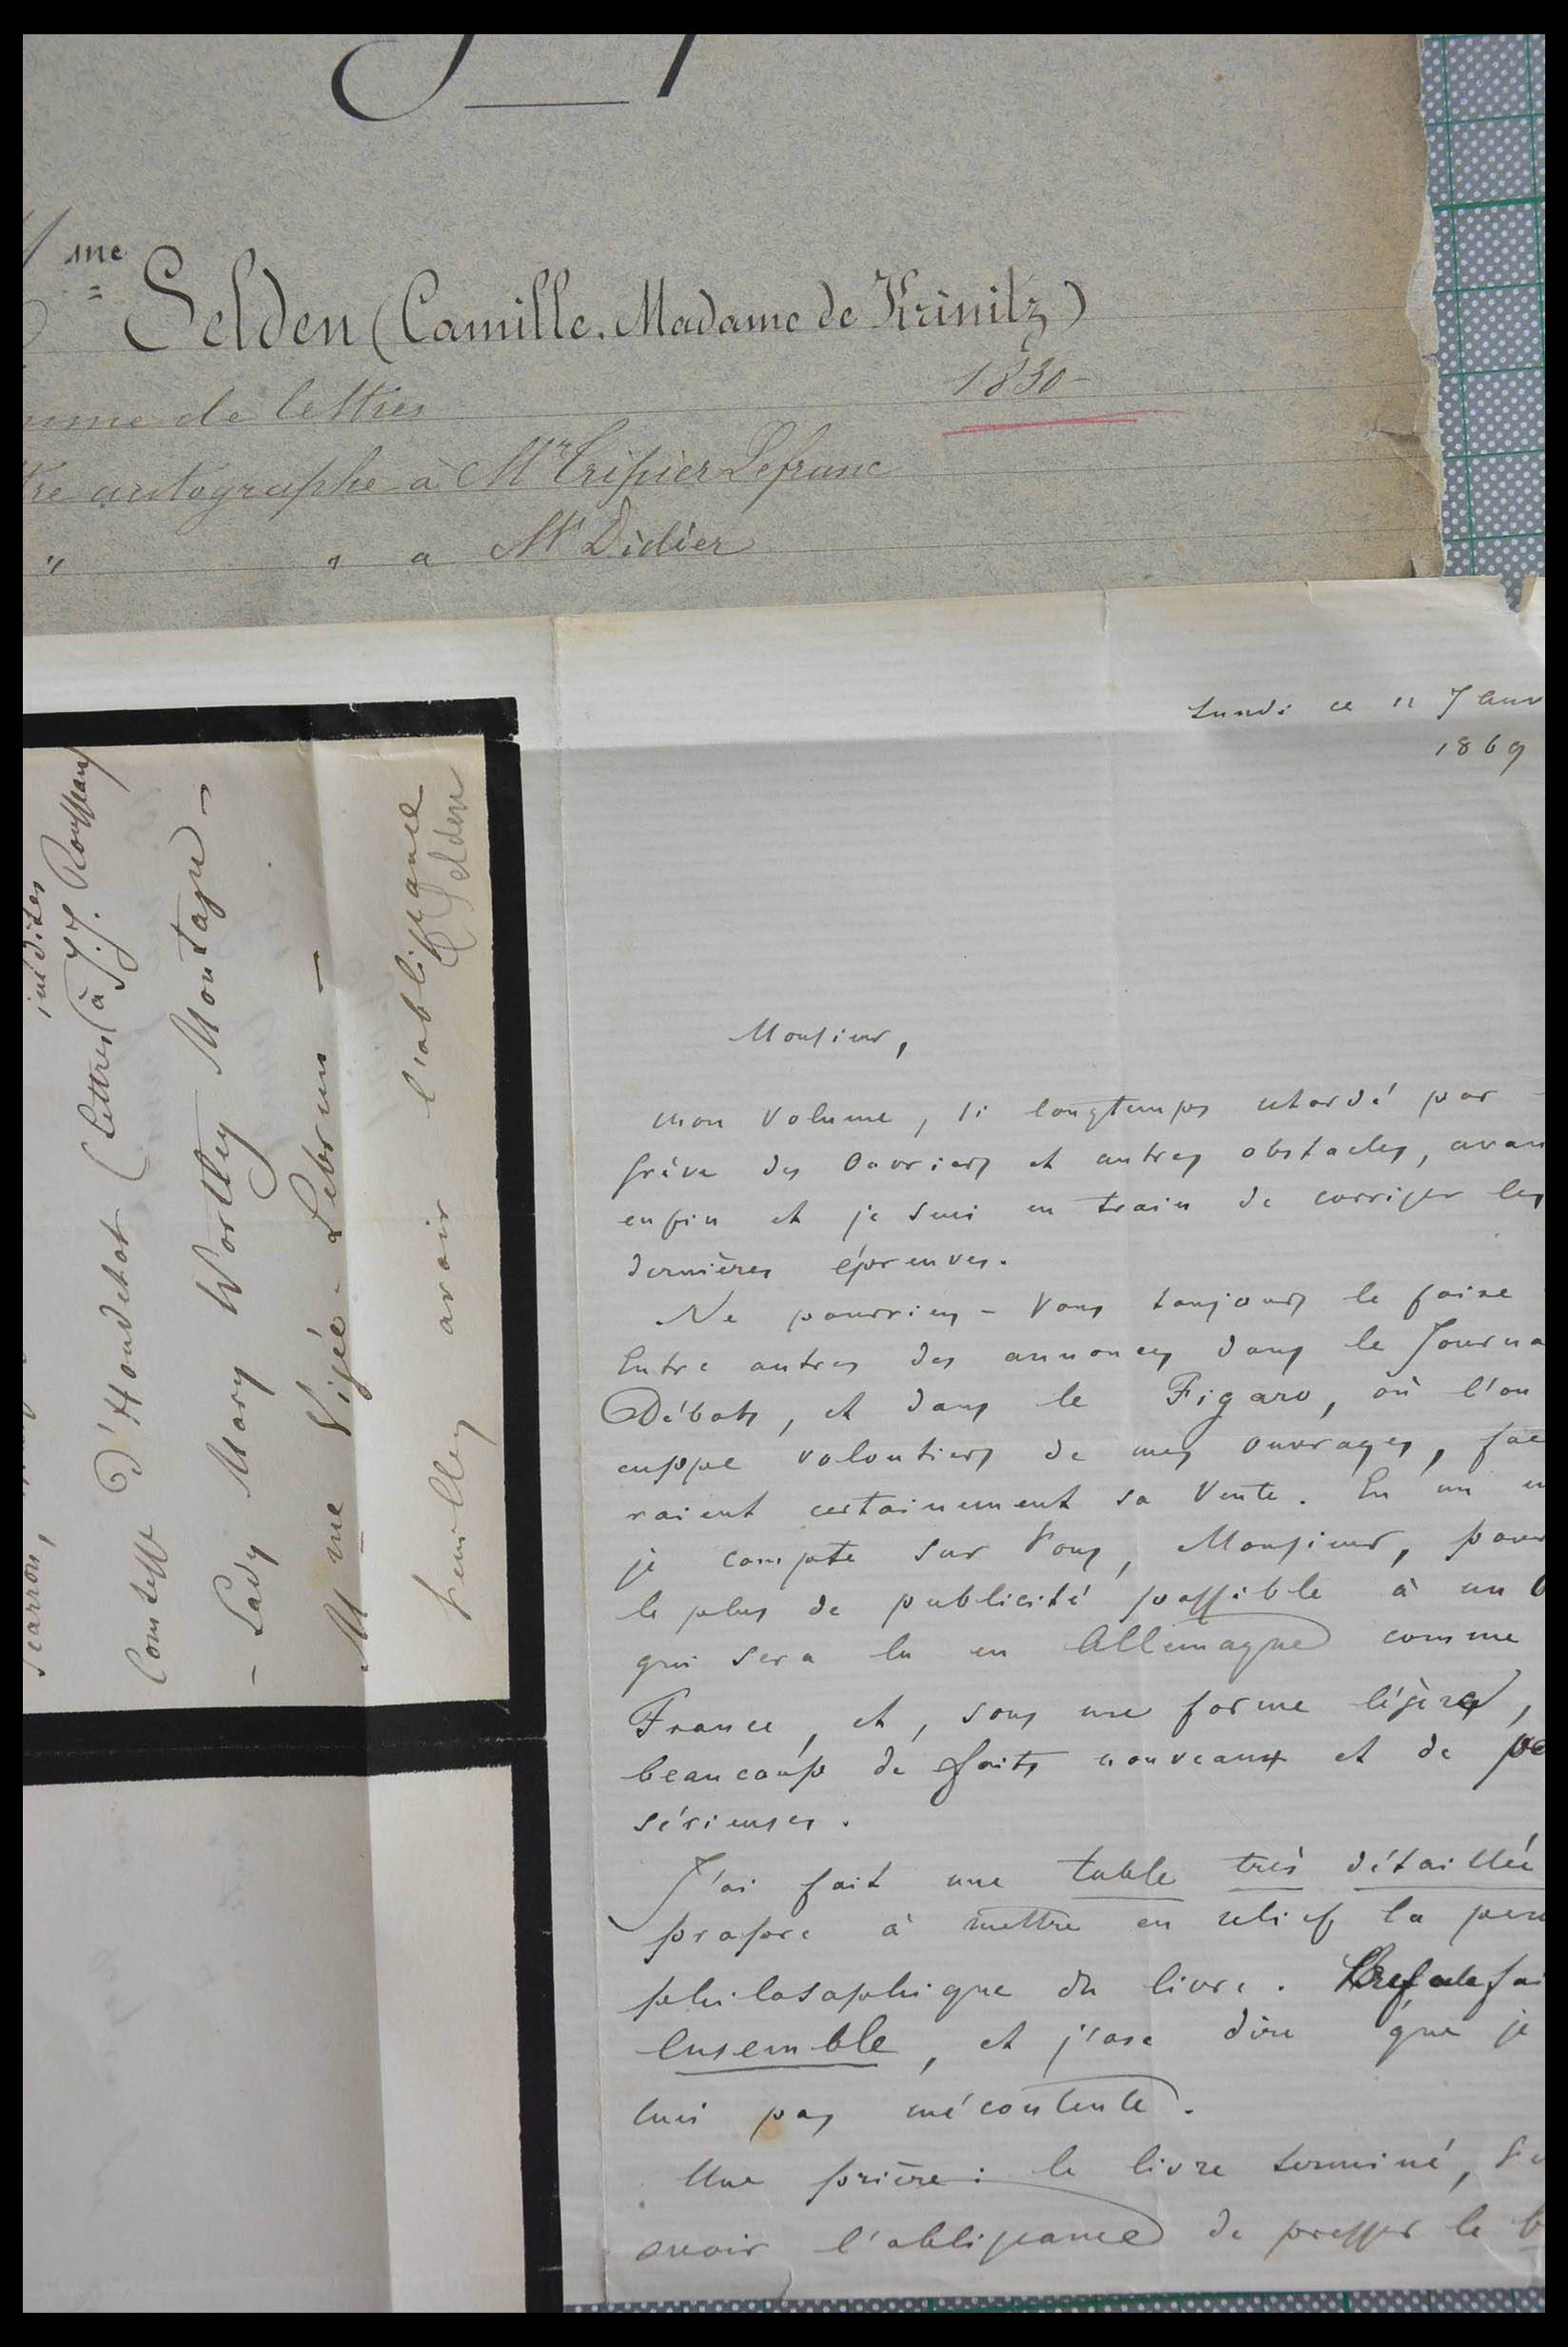 me
Selden (Camille. Madame de Krinitz)
1830-
de lettres
autographe à Mr Tripier Lefranc
" " a Mr Didier
Lundi ce 11 Janv
1869
Monsieur,
mon volume, si longtemps retardé par
grève des ouvriers et autres obstacles, avan
enfin et je suis en train de corriger les
dernières épreuves.
Ne pourriez-vous toujours le faire
Entre autres des annonces dans le Journa
Débats, et dans le Figaro, où l'on
cuppe volontiers de mes ouvrages, fac
raient certainement sa vente. En un m
je compte sur vous, Monsieur, pour
le plus de publicité possible à un
qui sera lu en Allemagne comme
France, et, sous une forme légère,
beaucoup de faits nouveaux et de pe
sérieuses.
J'ai fait une table très détaillée
propre à mettre en relief la pen
philosophique du livre.
Ensemble, et j'ose dire que je
suis pas mécontente.
Une prière: le livre terminé,
avoir l'obligeance de presser le b
inédites
Scarron,
Comtesse d'Houdetot (lettres à J. J. Rousseau)
- Lady Mary Wortley Montague -
Mme Vigée-Lebrun -
avoir l'obligeance
C Selden